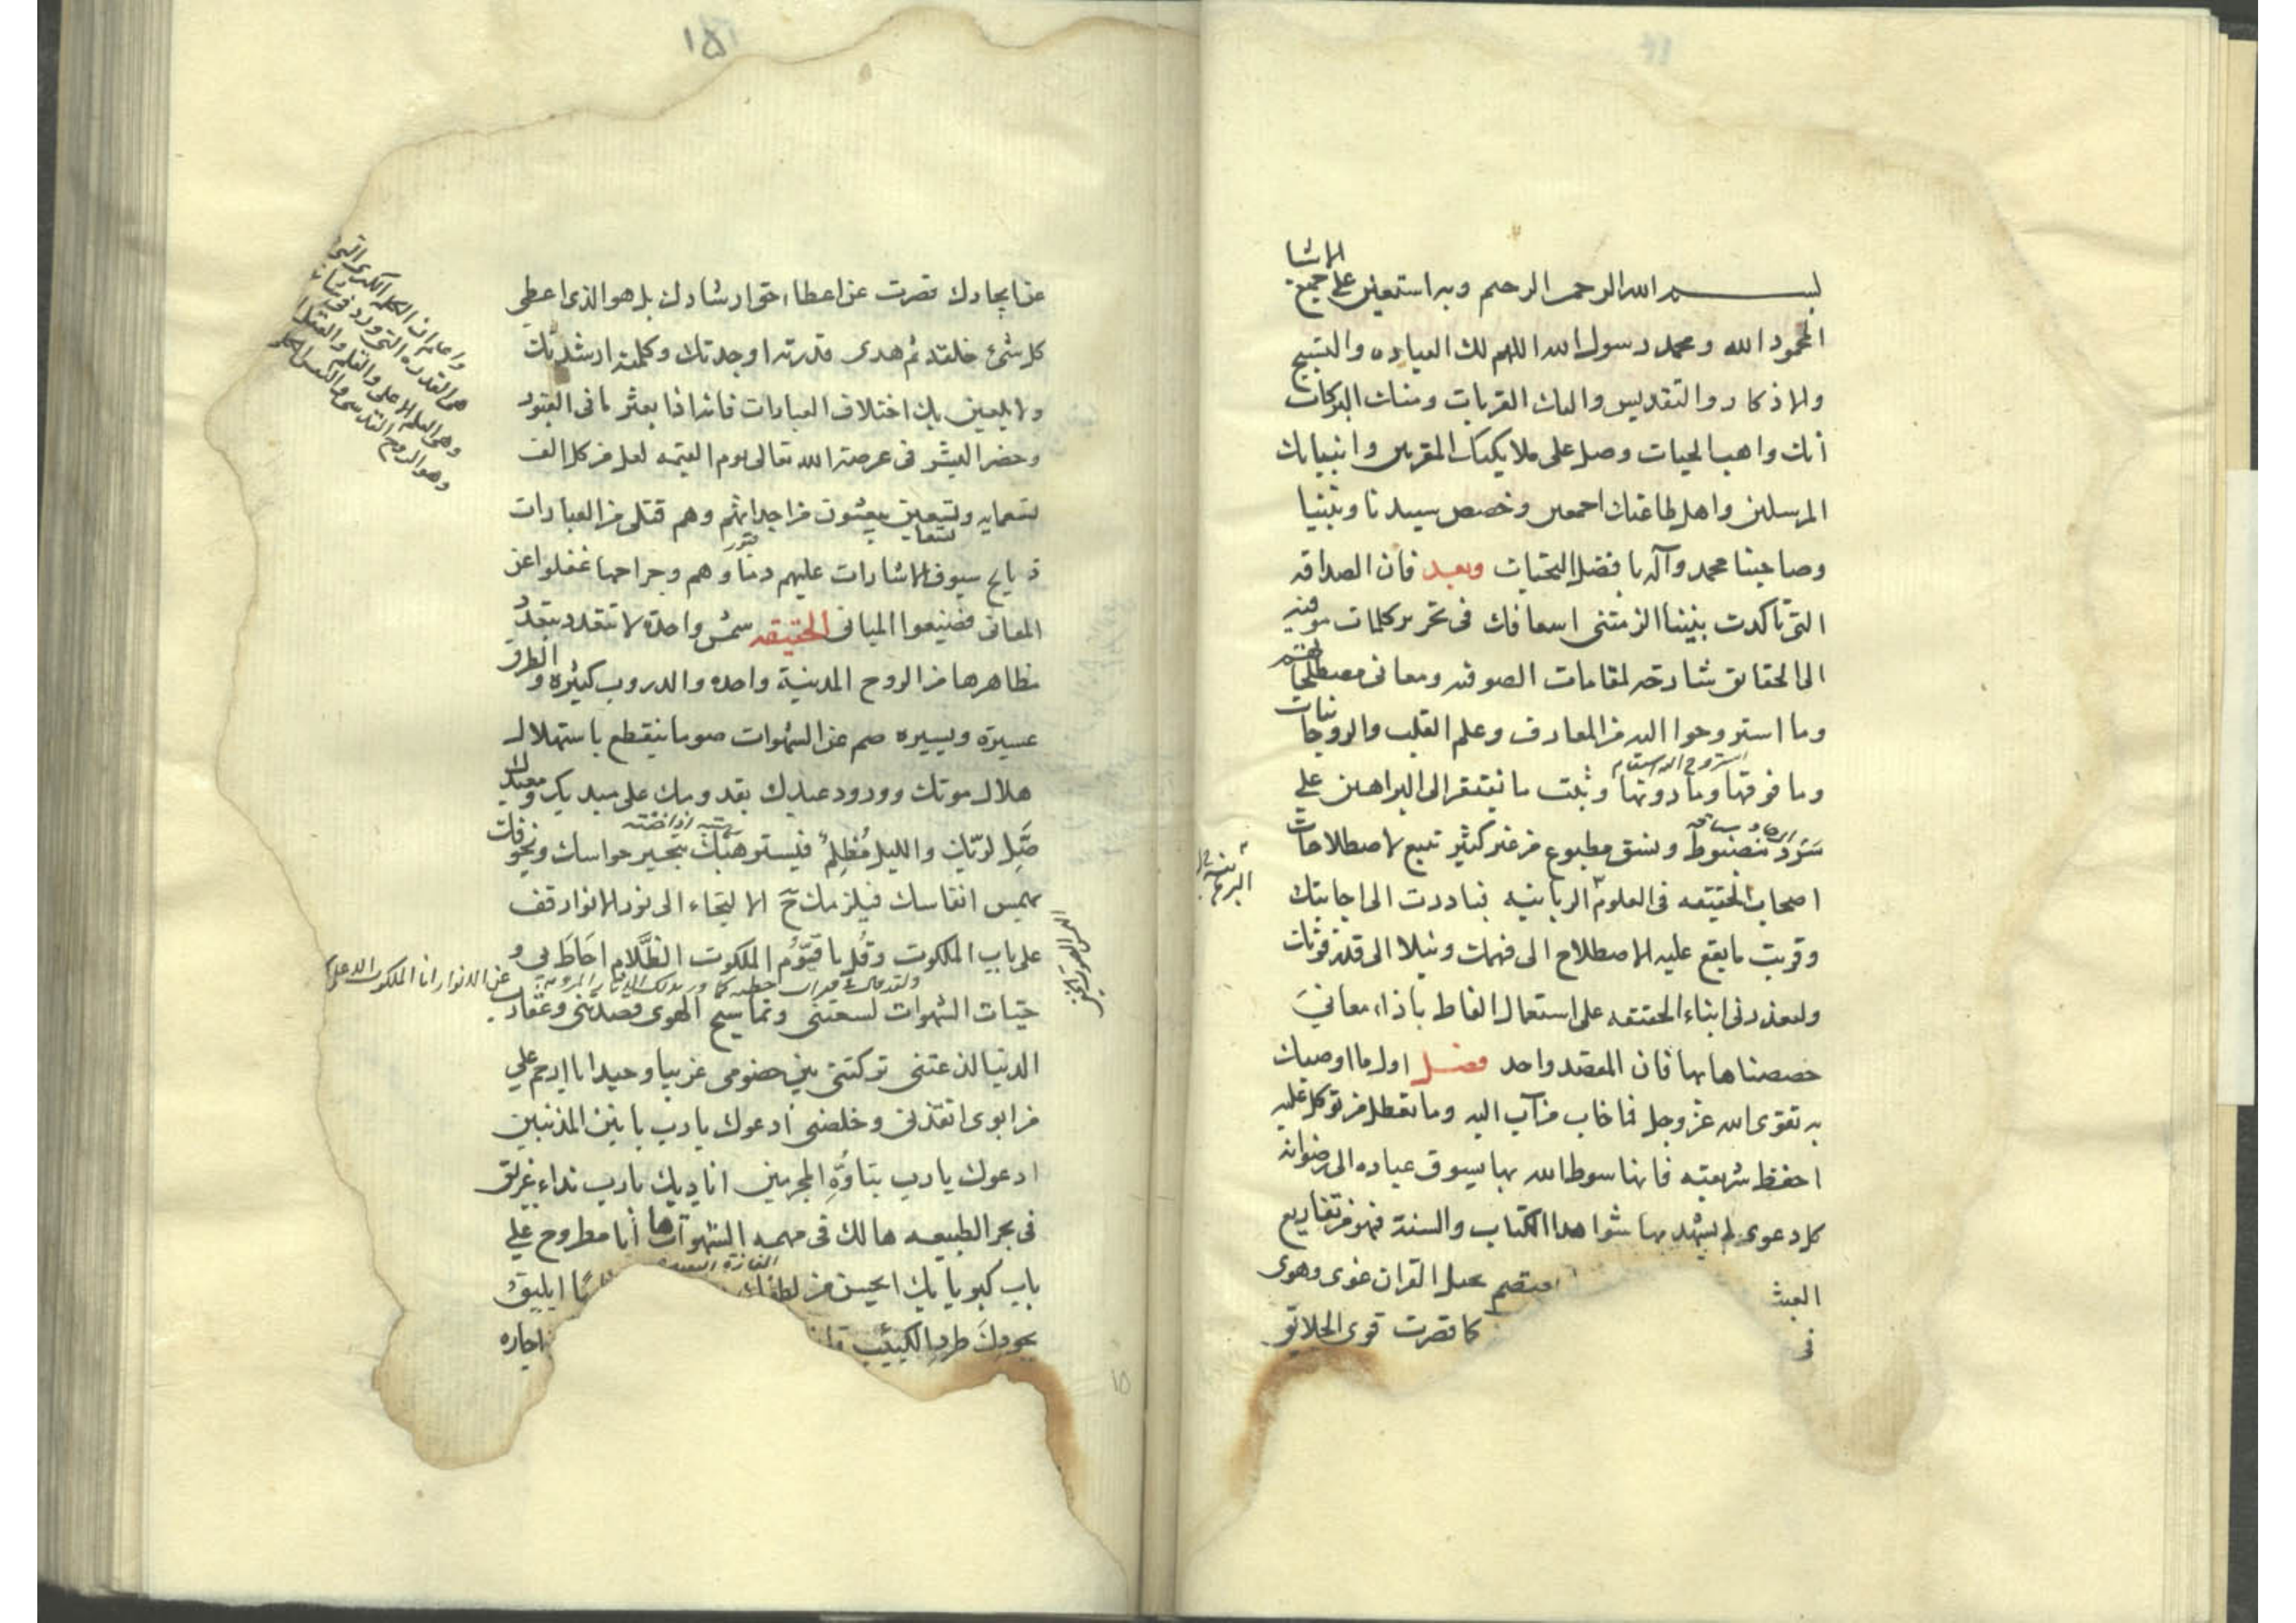 بسم الله الرحمن الرحيم وبه استعين على جميع الاشيا
المحمود الله ومحمد رسول الله اللهم لك العباده والتسبيح
والاذكار والتقديس واليك القربات ومنك البركات
انك واهب الحيات وصل على ملايكتك المقربين وانبيايك
المرسلين واهل طاعتك اجمعين وخصص سيدنا ونبينا
وصاحبنا محمد وآله بافضل التحيات وبعد فان الصداقه
التى تاكدت بيننا الزمتنى اسعافك فى تحرير كلمات موميه
الى الحقايق شارحه لمقامات الصوفيه ومعانى مصطلحاتهم
وما استروحوا اليه من المعارف وعلم القلب والروحانيات
وما فوقها وما دونها وثبت ما يفتقر الى البراهين على
سرد منضبوط ونسق مطبوع من غير كثير تتبع لاصطلاحات
اصحاب الحقيقه فى العلوم الربانيه فبادرت الى اجابتك
وقربت ما يقع عليه الاصطلاح الى فهمك وميلا الى قلة فوتات
وليعذرنى ابناء الحقيقه على استعمال الفاظ باذاء معانى
خصصناها بها فان المقصد واحد فصل اول ما اوصيك
به تقوى الله عز وجل فما خاب من آب اليه وما تعطل من توكل عليه
احفظ شريعته فانها سوط الله بها يسوق عباده الى رضوانه
كل دعوى لم يشهد بها شواهد الكتاب والسنة فهو من تفاريع
العبث يعتصم بحبل القران غوى وهوى
فى كما قصرت قوى الخلائق
عن ايجادك قصرت عن اعطاء حق ارشادك بل هو الذى اعطى
كل شئ خلقه ثم هدى قدرته اوجدتك وكلمته ارشدتك
ولا يلعبن بك اختلاف العبارات فانه اذا بعثر ما فى القبور
وحضر البشر فى عرصة الله تعالى يوم القيمه لعل من كل الف
تسعمايه وتسعين يبعثون من اجداثهم وهم قتلى من العبارات
ذبايح سيوف الاشارات عليهم دماوهم وجراحها غفلوا عن
المعانى فضيعوا المبانى الحقيقه شمس واحدة لا تتعدد بتعدد
مظاهرها من الروح المدينة واحده والدروب كثيره والطرق
عسيرة ويسيره صم عن الشهوات صوما ينقطع باستهلال
هلال موتك وورود عيدك بقدومك على مبديك ومعيدك
والليل مظلم فيستوحشك بتحير حواسك
انفاسك فيلزمك ح الالتجاء الى نور الانوار قف
على باب الملكوت وقل يا قيوم الملكوت الظلام احاط بى و
حيات الشهوات لسعتنى وتماسيح الهوى قصدتنى وعقارب
الدنيا لذعتنى تركتنى بين خصومى غريبا وحيدا
من ابوى انقذنى وخلصنى ادعوك يا رب يا نين المذنبين
ادعوك يا رب بتاوه المجرمين اناديك يا رب نداء غريق
فى بحر الطبيعه هالك فى مهمه الشهوات ها أنا مطروح على
باب كبريايك ايحسن من لطفك ايليق
بجودك طرد الكئيب
واعلم ان الكلمة الكبرى التى